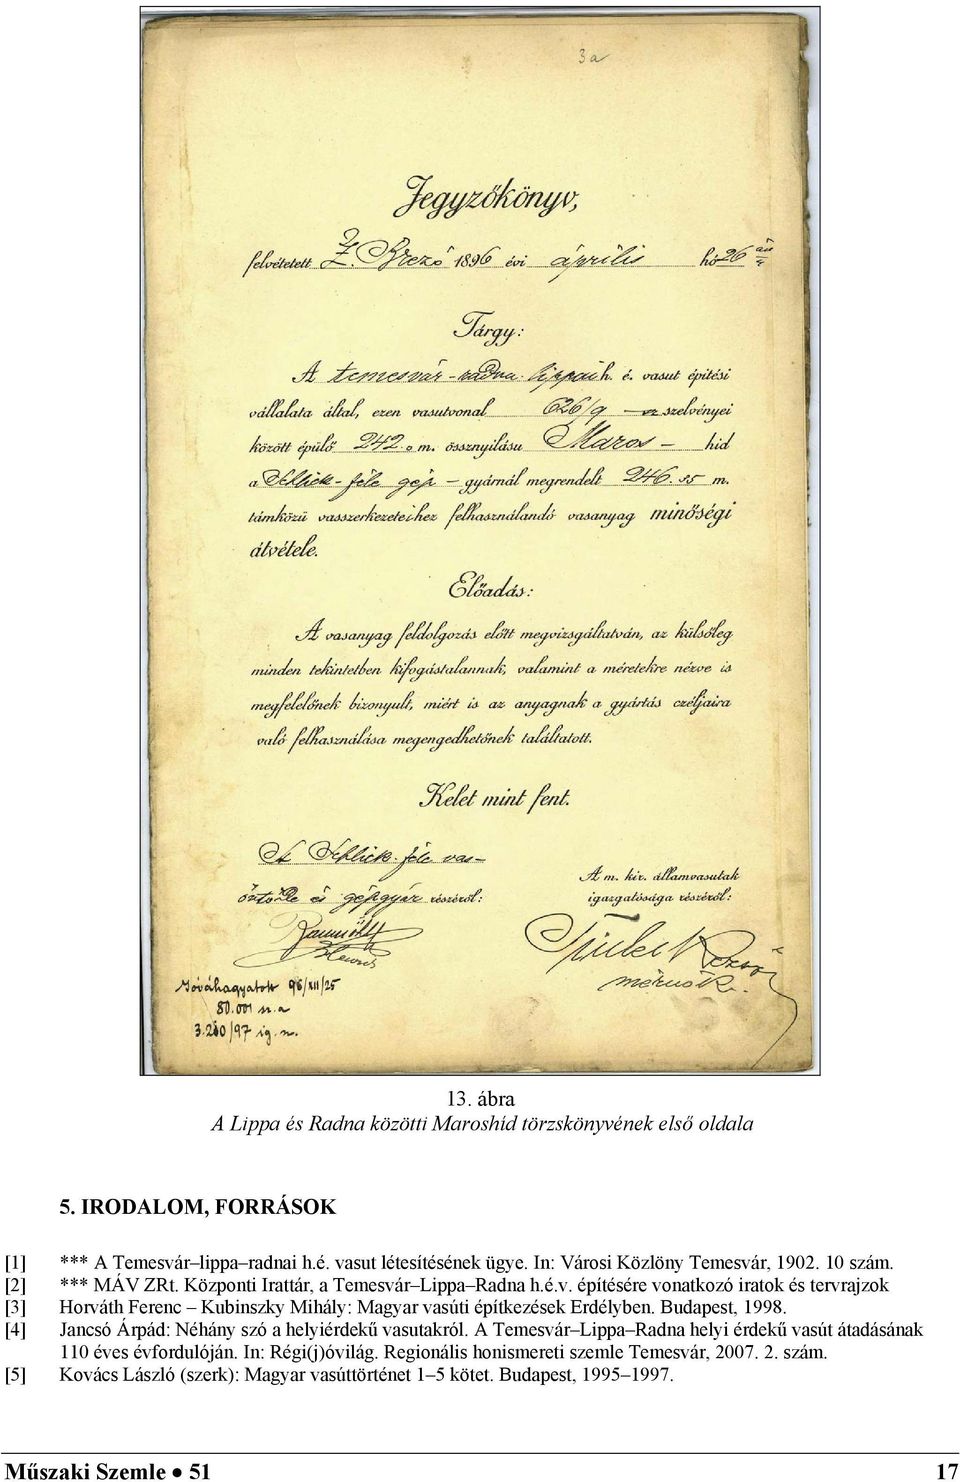 3a
Jegyzőkönyv,
felvétetett Z. Brezó 1896 évi április hó 26 án
Tárgy:
A temesvár-radna-lippai h. é. vasut épitési
vállalata által, ezen vasutvonal 626/9 — szelvényei
között épülő 242.0 m. össznyilásu Maros — hid
a Schlick-féle gép — gyárnál megrendelt 246.35 m.
támközü vasszerkezeteihez felhasználandó vasanyag minőségi
átvétele.
Előadás:
A vasanyag feldolgozás előtt megvizsgáltatván, az külsőleg
minden tekintetben kifogástalannak, valamint a méretekre nézve is
megfelelőnek bizonyult, miért is az anyagnak a gyártás czéljaira
való felhasználása megengedhetőnek találtatott.
Kelet mint fent.
A Schlick-féle vas-
öntöde és gépgyár részéről:
A m. kir. államvasutak
igazgatósága részéről:
Rezső
mérnök.
Jóváhagyatott 96/XII/25
80.001 sz.a
3.210/97 ig. n.
13. ábra
A Lippa és Radna közötti Maroshíd törzskönyvének első oldala
5. IRODALOM, FORRÁSOK
[1] *** A Temesvár–lippa–radnai h.é. vasut létesítésének ügye. In: Városi Közlöny Temesvár, 1902. 10 szám.
[2] *** MÁV ZRt. Központi Irattár, a Temesvár–Lippa–Radna h.é.v. építésére vonatkozó iratok és tervrajzok
[3] Horváth Ferenc – Kubinszky Mihály: Magyar vasúti építkezések Erdélyben. Budapest, 1998.
[4] Jancsó Árpád: Néhány szó a helyiérdekű vasutakról. A Temesvár–Lippa–Radna helyi érdekű vasút átadásának
110 éves évfordulóján. In: Régi(j)óvilág. Regionális honismereti szemle Temesvár, 2007. 2. szám.
[5] Kovács László (szerk): Magyar vasúttörténet 1–5 kötet. Budapest, 1995–1997.
Műszaki Szemle • 51 17